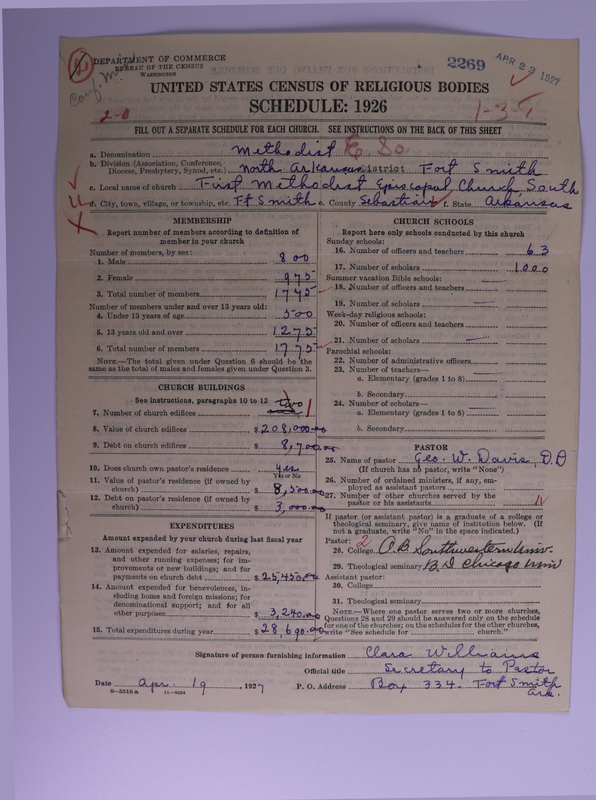 DEPARTMENT OF COMMERCE
BUREAU OF THE CENSUS
WASHINGTON
2269
APR 29 1927
UNITED STATES CENSUS OF RELIGIOUS BODIES
SCHEDULE: 1926
2-0
1-3-
FILL OUT A SEPARATE SCHEDULE FOR EACH CHURCH. SEE INSTRUCTIONS ON THE BACK OF THIS SHEET
a. Denomination Methodist E. So.
b. Division (Association, Conference, Diocese, Presbytery, Synod, etc.) North Arkansas district Fort Smith
c. Local name of church First Methodist Episcopal Church, South
d. City, town, village, or township, etc. Ft Smith e. County Sebastian f. State Arkansas
MEMBERSHIP
Report number of members according to definition of
member in your church
Number of members, by sex:
1. Male 800
2. Female 975
3. Total number of members 1775
Number of members under and over 13 years old:
4. Under 13 years of age 500
5. 13 years old and over 1275
6. Total number of members 1775
NOTE.—The total given under Question 6 should be the
same as the total of males and females given under Question 3.
CHURCH BUILDINGS
See instructions, paragraphs 10 to 12
7. Number of church edifices two 1
8. Value of church edifices $208,000.00
9. Debt on church edifices $8,700.00
10. Does church own pastor's residence yes
Yes or No
11. Value of pastor's residence (if owned by
church) $8,500.00
12. Debt on pastor's residence (if owned by
church) $3,000.00
EXPENDITURES
Amount expended by your church during last fiscal year
13. Amount expended for salaries, repairs,
and other running expenses; for im-
provements or new buildings; and for
payments on church debt $25,450.00
14. Amount expended for benevolences, in-
cluding home and foreign missions; for
denominational support; and for all
other purposes $3,240.00
15. Total expenditures during year $28,690.00
CHURCH SCHOOLS
Report here only schools conducted by this church
Sunday schools:
16. Number of officers and teachers 63
17. Number of scholars 1000
Summer vacation Bible schools:
18. Number of officers and teachers
19. Number of scholars
Week-day religious schools:
20. Number of officers and teachers
21. Number of scholars
Parochial schools:
22. Number of administrative officers
23. Number of teachers—
a. Elementary (grades 1 to 8)
b. Secondary
24. Number of scholars—
a. Elementary (grades 1 to 8)
b. Secondary
PASTOR
25. Name of pastor Geo. W. Davis, D.D
(If church has no pastor, write "None")
26. Number of ordained ministers, if any, em-
ployed as assistant pastors
27. Number of other churches served by the
pastor or his assistants
If pastor (or assistant pastor) is a graduate of a college or
theological seminary, give name of institution below. (If
not a graduate, write "No" in the space indicated.)
Pastor: 2
28. College A.B. Southwestern Univ.
29. Theological seminary B.D Chicago Univ
Assistant pastor:
30. College
31. Theological seminary
NOTE.—Where one pastor serves two or more churches,
Questions 28 and 29 should be answered only on the schedule
for one of the churches; on the schedules for the other churches,
write "See schedule for church."
Signature of person furnishing information Clara Williams
Official title Secretary to Pastor
Date Apr. 19, 1927
P. O. Address Box 334. Fort Smith
Ark.
8-5618a 11-9034